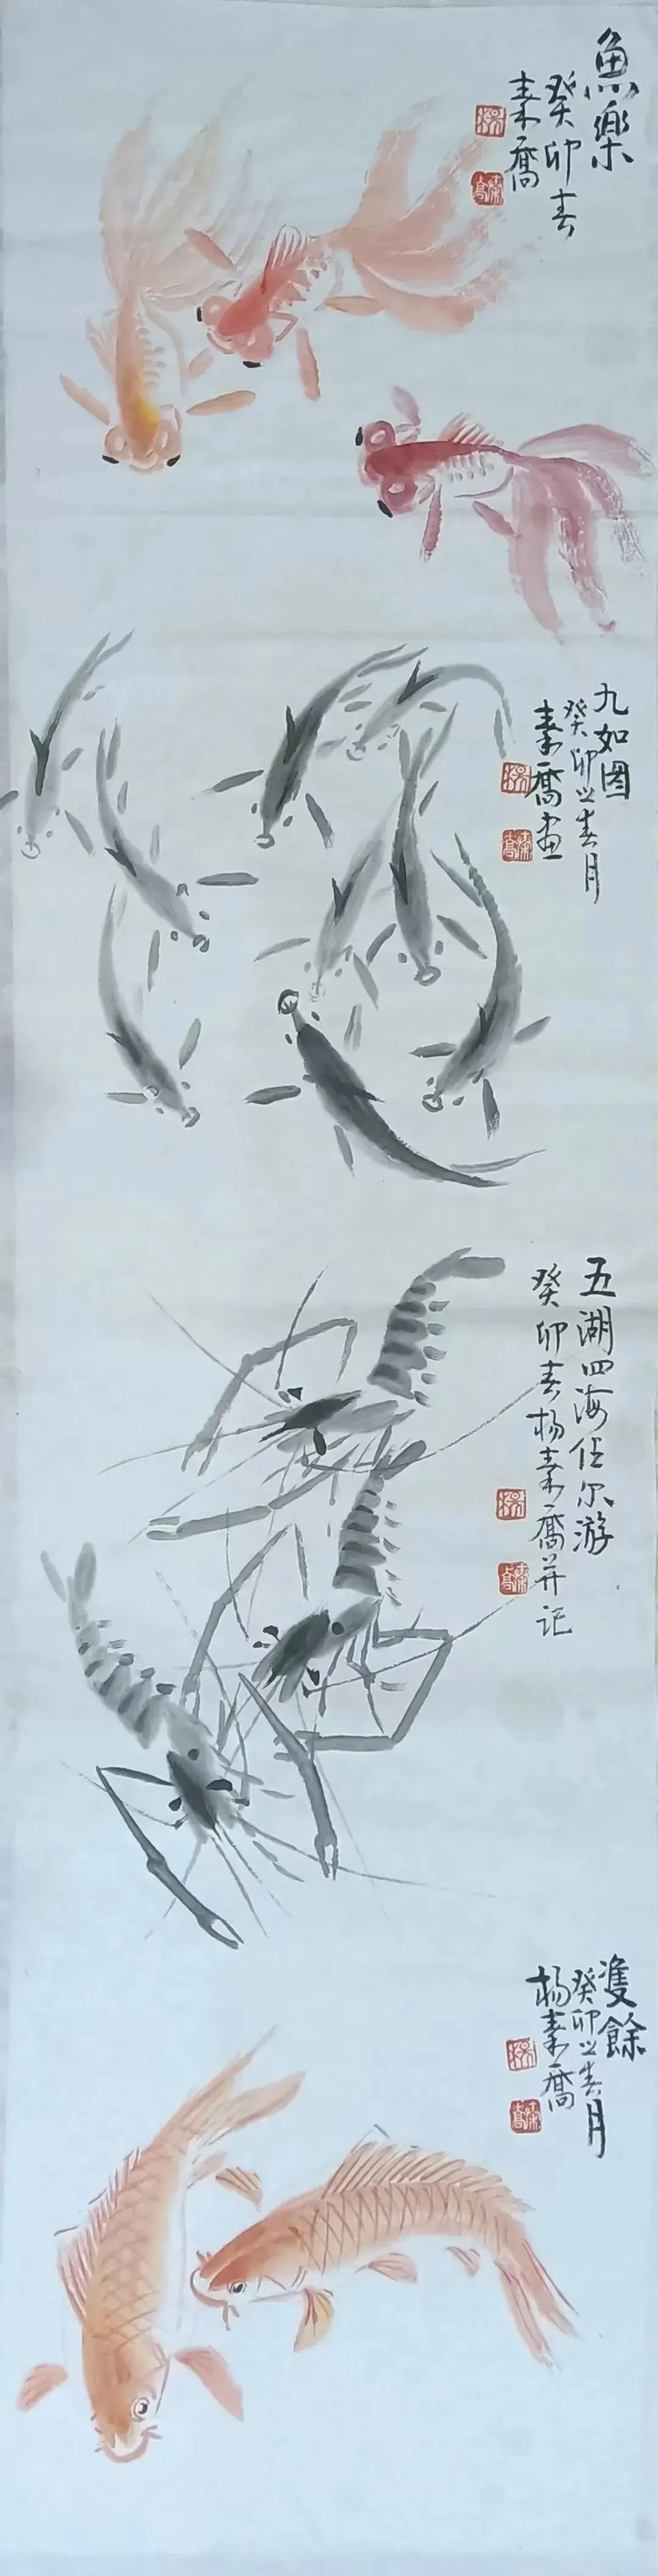 魚樂
癸卯春
素喬
九如图
癸卯之春月
素喬画
五湖四海任尔游
癸卯春杨素喬并记
雙餘
癸卯之春月
杨素喬